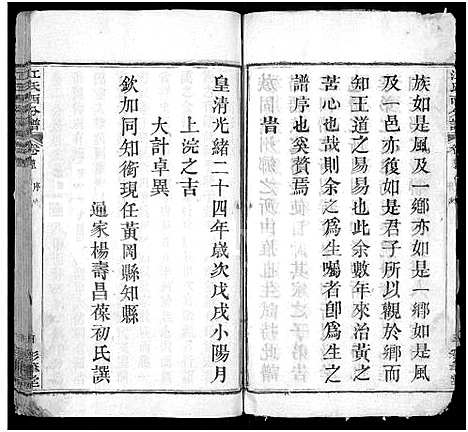 族如是風及一鄉亦如是一鄉如是風
及一邑亦復如是君子所以觀於鄉而
知王道之易易也此余數年來治黃之
苦心也哉則余之為生囑者卽為生之
譜序也奚贅焉
旹
皇清光緒二十四年歲次戊戌小陽月
上浣之吉
大計卓異
欽加同知銜現任黃岡縣知縣
通家楊壽昌葆初氏譔